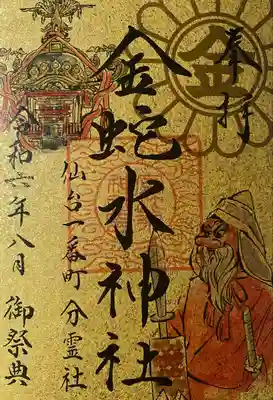 奉拝
金
金蛇水神社
仙台一番町 分霊社
令和六年八月 御祭典